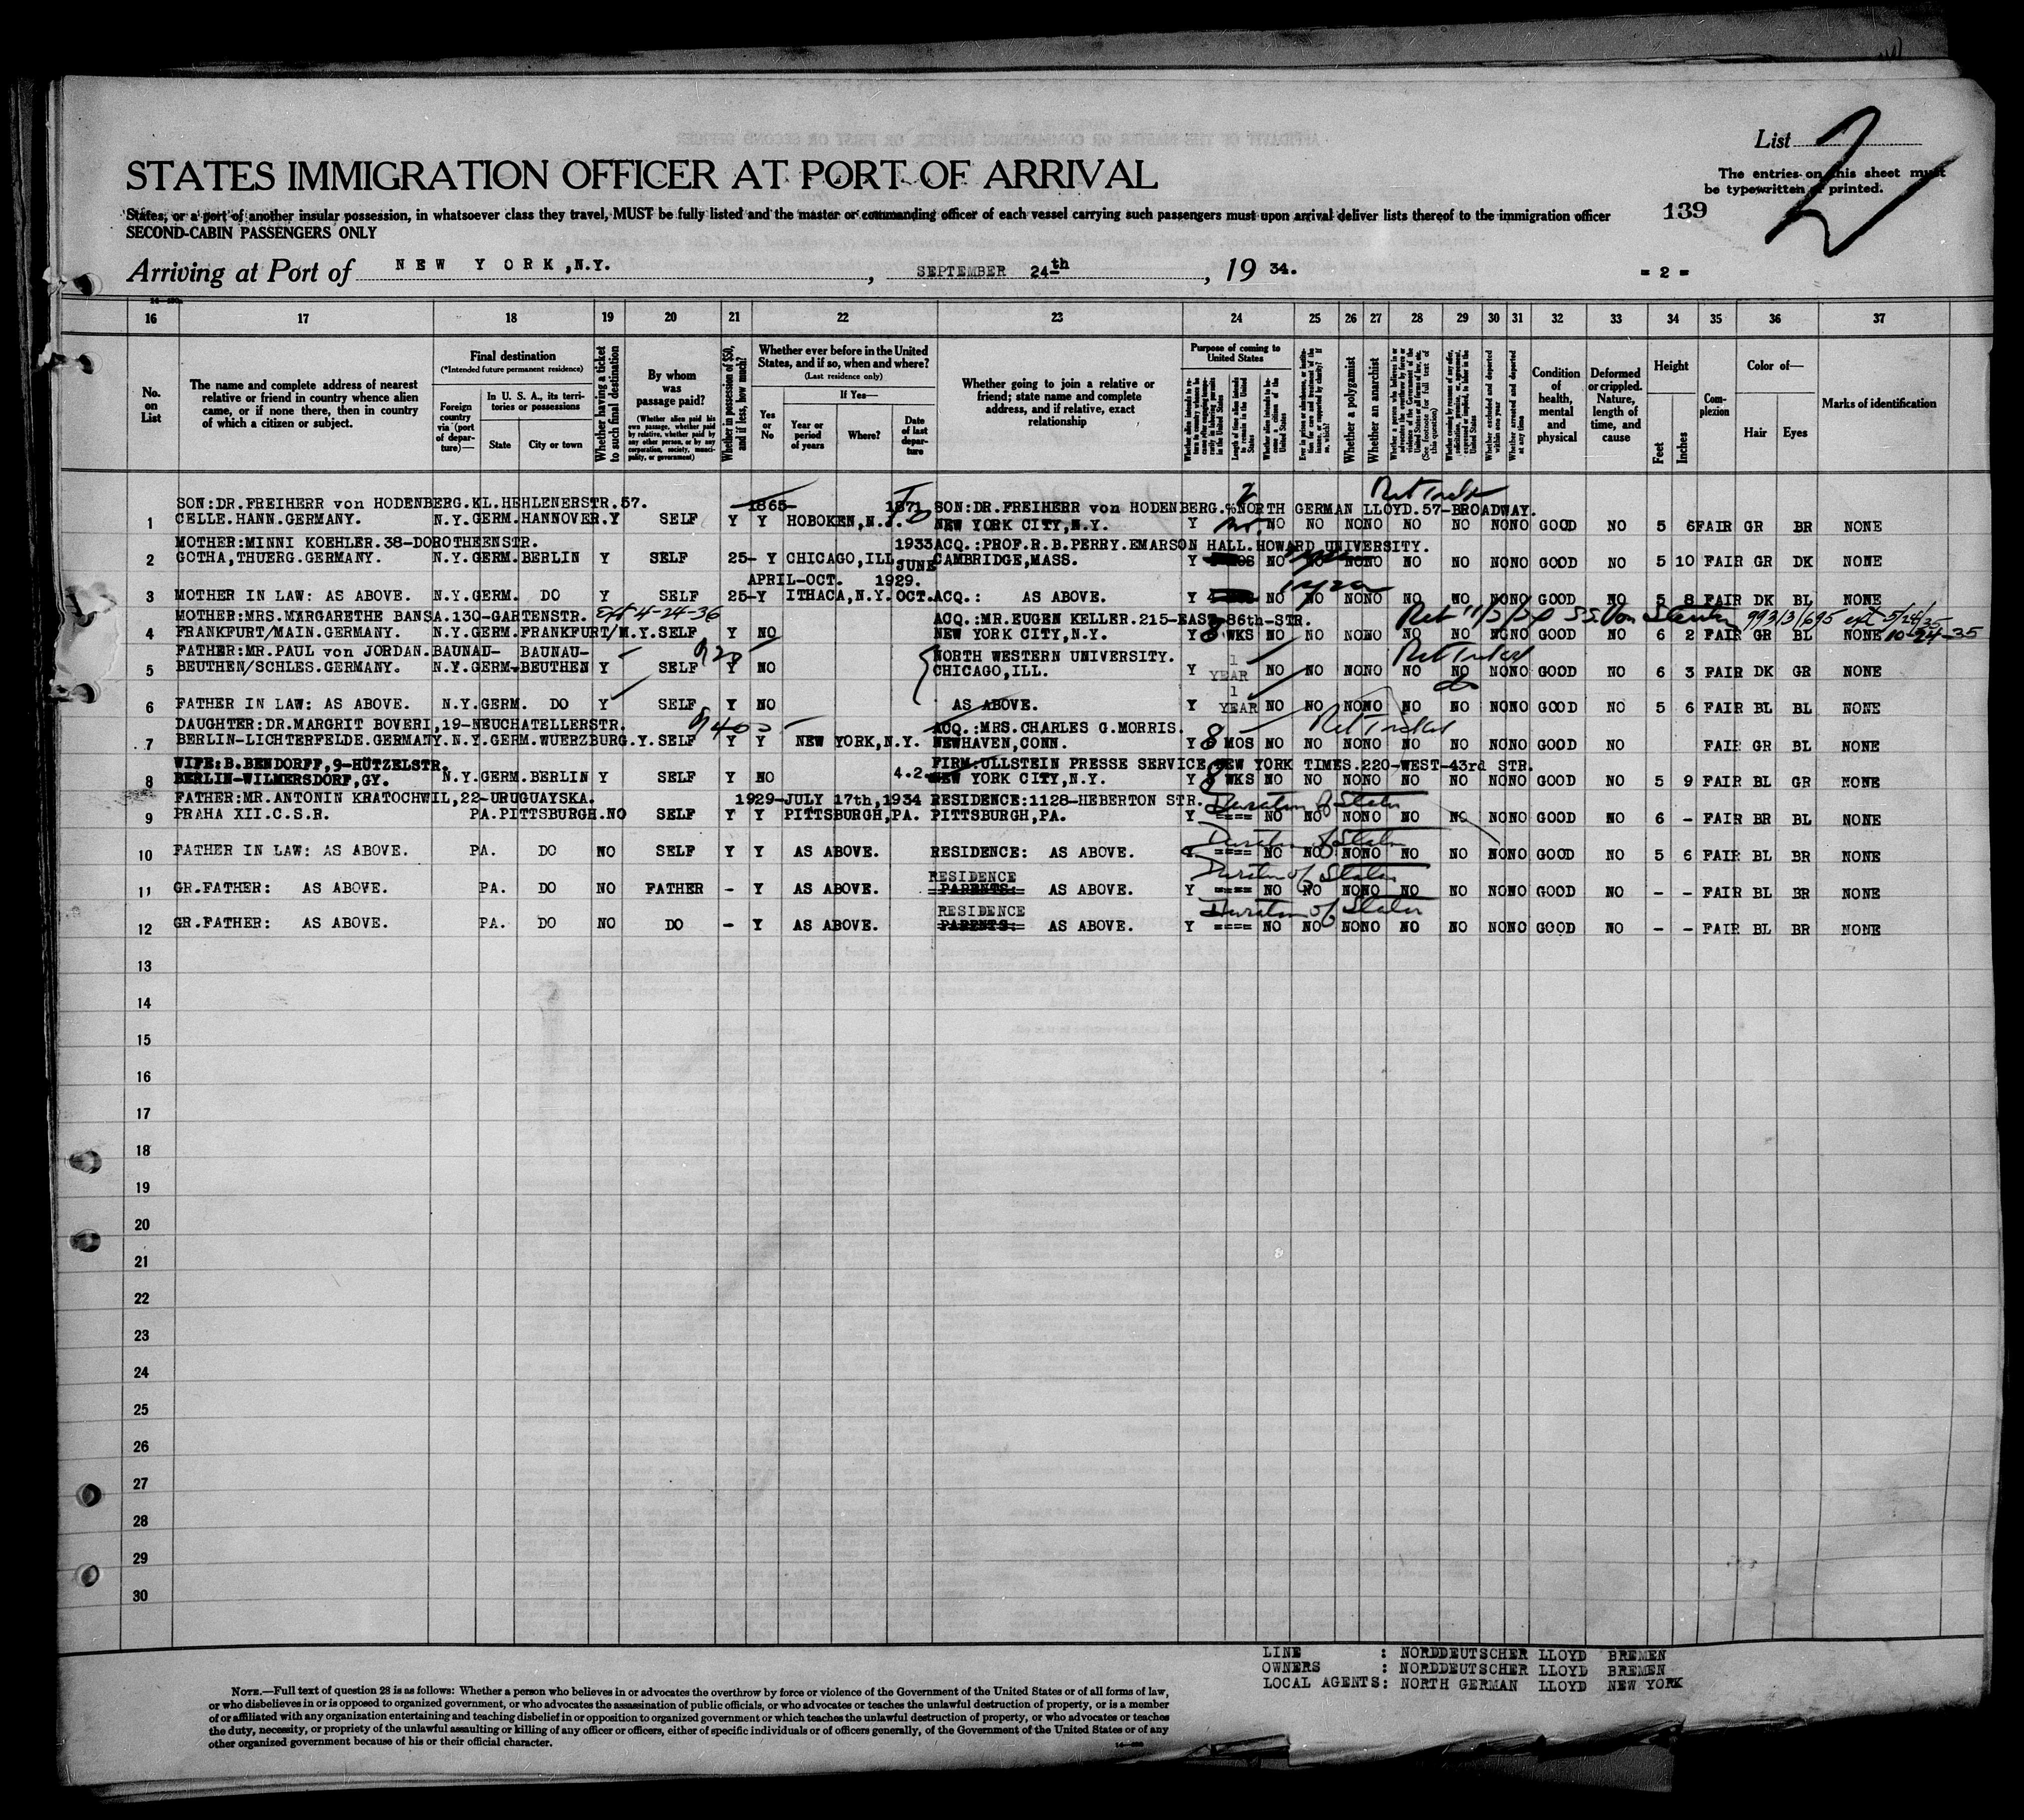 List
STATES IMMIGRATION OFFICER AT PORT OF ARRIVAL
The entries on this sheet must
be typewritten or printed.
States, or a port of another insular possession, in whatsoever class they travel, MUST be fully listed and the master or commanding officer of each vessel carrying such passengers must upon arrival deliver lists thereof to the immigration officer
139
2
SECOND-CABIN PASSENGERS ONLY
Arriving at Port of NEW YORK,N.Y. , SEPTEMBER 24th , 19 34.
= 2 =
16 17 18 19 20 21 22 23 24 25 26 27 28 29 30 31 32 33 34 35 36 37
No. on List
The name and complete address of nearest relative or friend in country whence alien came, or if none there, then in country of which a citizen or subject.
Final destination
(*Intended future permanent residence)
Foreign country via (port of departure)—
In U. S. A., its territories or possessions
State
City or town
Whether having a ticket to such final destination
By whom was passage paid?
(Whether alien paid his own passage, whether paid by relative, whether paid by any other person, or by any corporation, society, municipality, or government)
Whether in possession of $50, and if less, how much?
Whether ever before in the United States, and if so, when and where?
(Last residence only)
Yes or No
If Yes—
Year or period of years
Where?
Date of last departure
Whether going to join a relative or friend; state name and complete address, and if relative, exact relationship
Purpose of coming to United States
Length of time alien intends to remain in the United States
Whether alien intends to become a citizen of the United States
Whether a polygamist
Whether an anarchist
Whether excluded and deported within one year
Whether arrested and deported at any time
Condition of health, mental and physical
Deformed or crippled. Nature, length of time, and cause
Height
Feet
Inches
Complexion
Color of—
Hair
Eyes
Marks of identification
SON:DR.FREIHERR von HODENBERG.KL.HEHLENERSTR.57. 1865- 1871 SON:DR.FREIHERR von HODENBERG.%NORTH GERMAN LLOYD.57-BROADWAY.
1 CELLE.HANN.GERMANY. N.Y.GERM.HANNOVER.Y SELF Y Y HOBOKEN,N.J. NEW YORK CITY,N.Y. Y NO NO NONO NO NO NONO GOOD NO 5 6 FAIR GR BR NONE
MOTHER:MINNI KOEHLER.38-DOROTHEENSTR. 1933 ACQ.:PROF.R.B.PERRY.EMARSON HALL.HOWARD UNIVERSITY.
2 GOTHA,THUERG.GERMANY. N.Y.GERM.BERLIN Y SELF 25- Y CHICAGO,ILL. JUNE CAMBRIDGE,MASS. Y NO NO NONO NO NO NONO GOOD NO 5 10 FAIR GR DK NONE
APRIL-OCT. 1929.
3 MOTHER IN LAW: AS ABOVE. N.Y.GERM. DO Y SELF 25-Y ITHACA,N.Y. OCT. ACQ.: AS ABOVE. Y NO NO NONO NO NO NONO GOOD NO 5 8 FAIR DK BL NONE
MOTHER:MRS.MARGARETHE BANSA.130-GARTENSTR. Ext 4-24-36 ACQ.:MR.EUGEN KELLER.215-EAST-86th-STR.
4 FRANKFURT/MAIN.GERMANY. N.Y.GERM.FRANKFURT/M.Y.SELF Y NO NEW YORK CITY,N.Y. Y 8 WKS NO NO NONO NO NO NONO GOOD NO 6 2 FAIR GR BL NONE 10-24-35
FATHER:MR.PAUL von JORDAN.BAUNAU- BAUNAU- NORTH WESTERN UNIVERSITY.
5 BEUTHEN/SCHLES.GERMANY. N.Y.GERM-BEUTHEN Y SELF Y NO CHICAGO,ILL. Y 1 YEAR NO NO NONO NO NO NONO GOOD NO 6 3 FAIR DK GR NONE
6 FATHER IN LAW: AS ABOVE. N.Y.GERM. DO Y SELF Y NO AS ABOVE. Y 1 YEAR NO NO NONO NO NO NONO GOOD NO 5 6 FAIR BL BL NONE
DAUGHTER:DR.MARGRIT BOVERI,19-NEUCHATELLERSTR. ACQ.:MRS.CHARLES G.MORRIS. Ret Ticket
7 BERLIN-LICHTERFELDE.GERMANY.N.Y.GERM.WUERZBURG.Y.SELF Y Y NEW YORK,N.Y. NEWHAVEN,CONN. Y 8 MOS NO NO NONO NO NO NONO GOOD NO FAIR GR BL NONE
WIFE:B.BENDORFF,9-HÜTZELSTR. FIRM:ULLSTEIN PRESSE SERVICE,NEW YORK TIMES.220-WEST-43rd STR.
8 BERLIN-WILMERSDORF,GY. N.Y.GERM.BERLIN Y SELF Y NO 4.2. NEW YORK CITY,N.Y. Y 8 WKS NO NO NONO NO NO NONO GOOD NO 5 9 FAIR BL GR NONE
FATHER:MR.ANTONIN KRATOCHWIL,22-URUGUAYSKA. 1929-JULY 17th,1934 RESIDENCE:1128-HEBERTON STR. Duration of Status
9 PRAHA XII.C.S.R. PA.PITTSBURGH.NO SELF Y Y PITTSBURGH,PA. PITTSBURGH,PA. Y ---- NO NO NONO NO NO NONO GOOD NO 6 - FAIR BR BL NONE
Duration of Status
10 FATHER IN LAW: AS ABOVE. PA. DO NO SELF Y Y AS ABOVE. RESIDENCE: AS ABOVE. Y ---- NO NO NONO NO NO NONO GOOD NO 5 6 FAIR BL BR NONE
RESIDENCE Duration of Status
11 GR.FATHER: AS ABOVE. PA. DO NO FATHER - Y AS ABOVE. PARENTS: AS ABOVE. Y ---- NO NO NONO NO NO NONO GOOD NO - - FAIR BL BR NONE
RESIDENCE Duration of Status
12 GR.FATHER: AS ABOVE. PA. DO NO DO - Y AS ABOVE. PARENTS: AS ABOVE. Y ---- NO NO NONO NO NO NONO GOOD NO - - FAIR BL BR NONE
13
14
15
16
17
18
19
20
21
22
23
24
25
26
27
28
29
30
LINE : NORDDEUTSCHER LLOYD BREMEN
OWNERS : NORDDEUTSCHER LLOYD BREMEN
LOCAL AGENTS: NORTH GERMAN LLOYD NEW YORK
NOTE.—Full text of question 28 is as follows: Whether a person who believes in or advocates the overthrow by force or violence of the Government of the United States or of all forms of law,
or who disbelieves in or is opposed to organized government, or who advocates the assassination of public officials, or who advocates or teaches the unlawful destruction of property, or is a member
of or affiliated with any organization entertaining and teaching disbelief in or opposition to organized government or which teaches the unlawful destruction of property, or who advocates or teaches
the duty, necessity, or propriety of the unlawful assaulting or killing of any officer or officers, either of specific individuals or of officers generally, of the Government of the United States or of any
other organized government because of his or their official character.